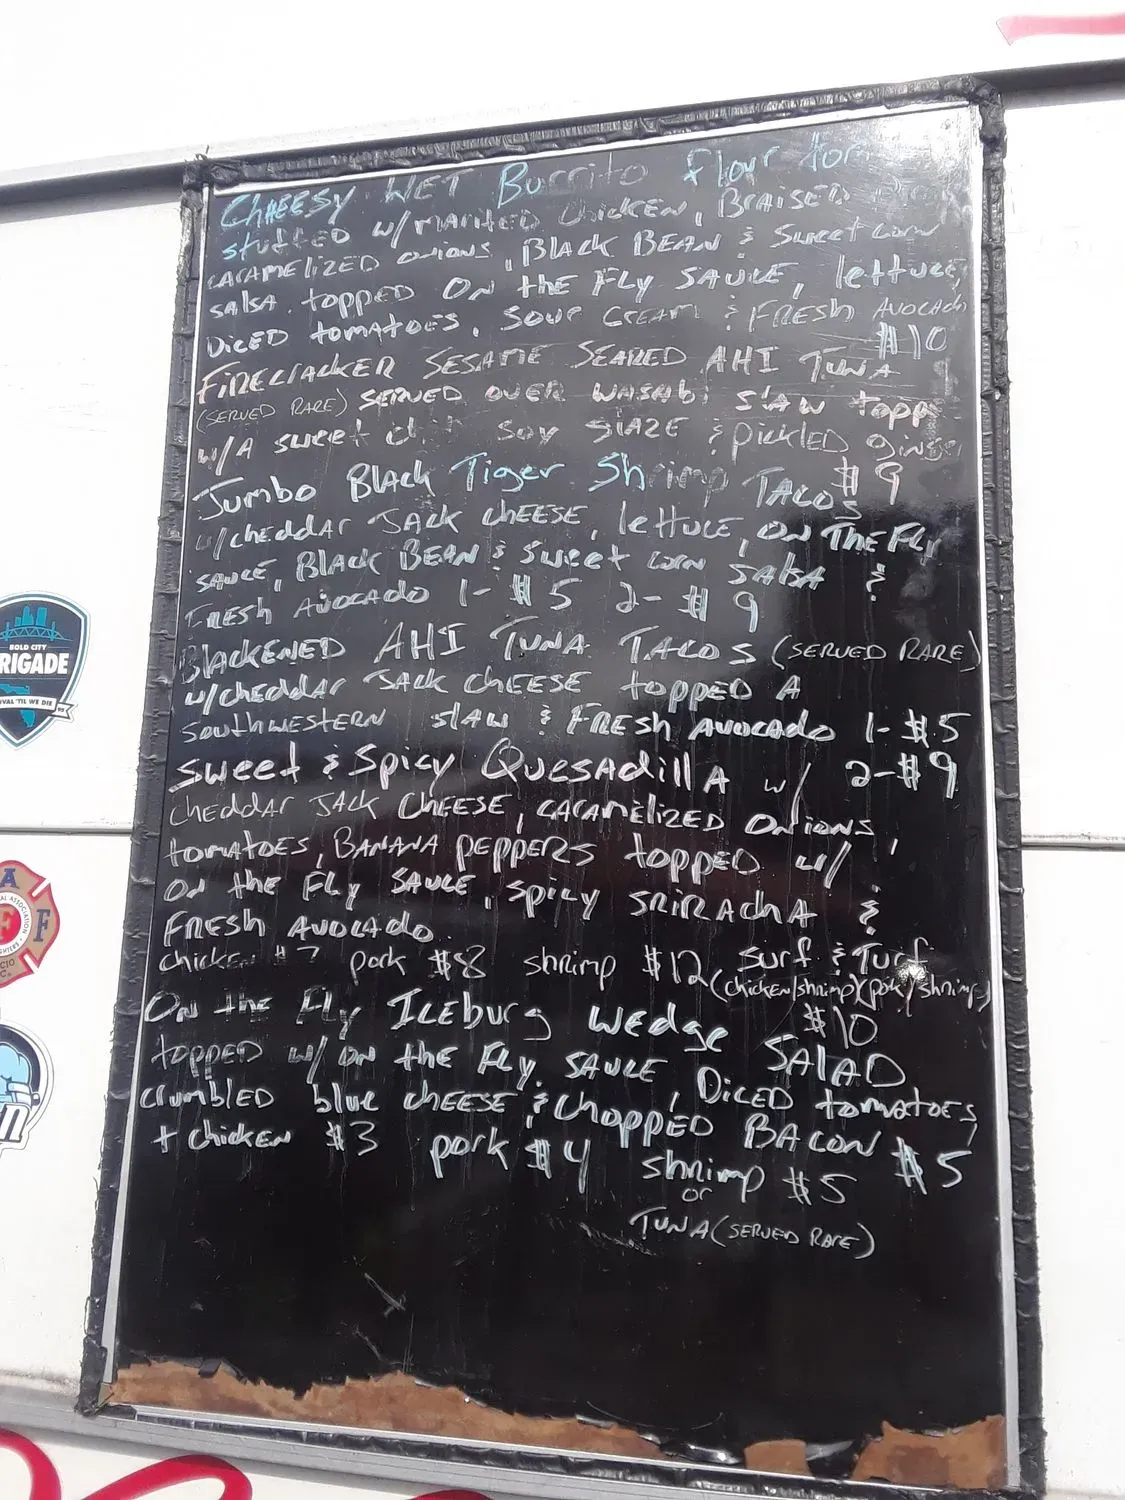 CHEESY WET Burrito Flour tor
stuffed w/ marinted chicken, BRAISED
CARAMELIZED onions, BLACK BEAN & Sweet corn
SALSA. topped ON the Fly SAUCE, lettuce,
DICED tomatoes, SOUR CREAM & FRESH AVOCADO
$10
FIRECRACKER SESAME SEARED AHI TUNA
(SERVED RARE) SERVED OVER WASAbi SlAW topp
w/A sweet soy glaze & pickled ginger
$9
Jumbo BLACK Tiger Shrimp TACOS
w/cheddar JACK CHEESE, lettuce, ON THE Fly
SAUCE, BLACK BEAN & sweet corn SALSA &
FRESH AVOCADO 1- $5 2- $9
BLACKENED AHI TUNA TACOS (SERVED RARE)
w/cheddar JACK CHEESE topped A
southwestern slaw & FRESH AVOCADO 1- $5
2-$9
Sweet & Spicy QUESADILLA w/
cheddar JACK CHEESE, CARAMELIZED ONIONS,
tomatoes, BANANA peppers topped w/
On the Fly SAUCE, spicy SRIRACHA &
FRESH AVOCADO
chicken #7 pork $8 shrimp $12 Surf & Turf
(chicken/shrimp)(pork/shrimp)
$10
On the Fly ICEburg wedge SALAD
topped w/ ON the Fly SAUCE, DICED tomatoes,
crumbled blue cheese & chopped BACON $5
+ chicken $3 pork $4 shrimp $5
or
TUNA (SERVED RARE)
BOLD CITY
RIGADE
VAL 'TIL WE DIE
A
F
F